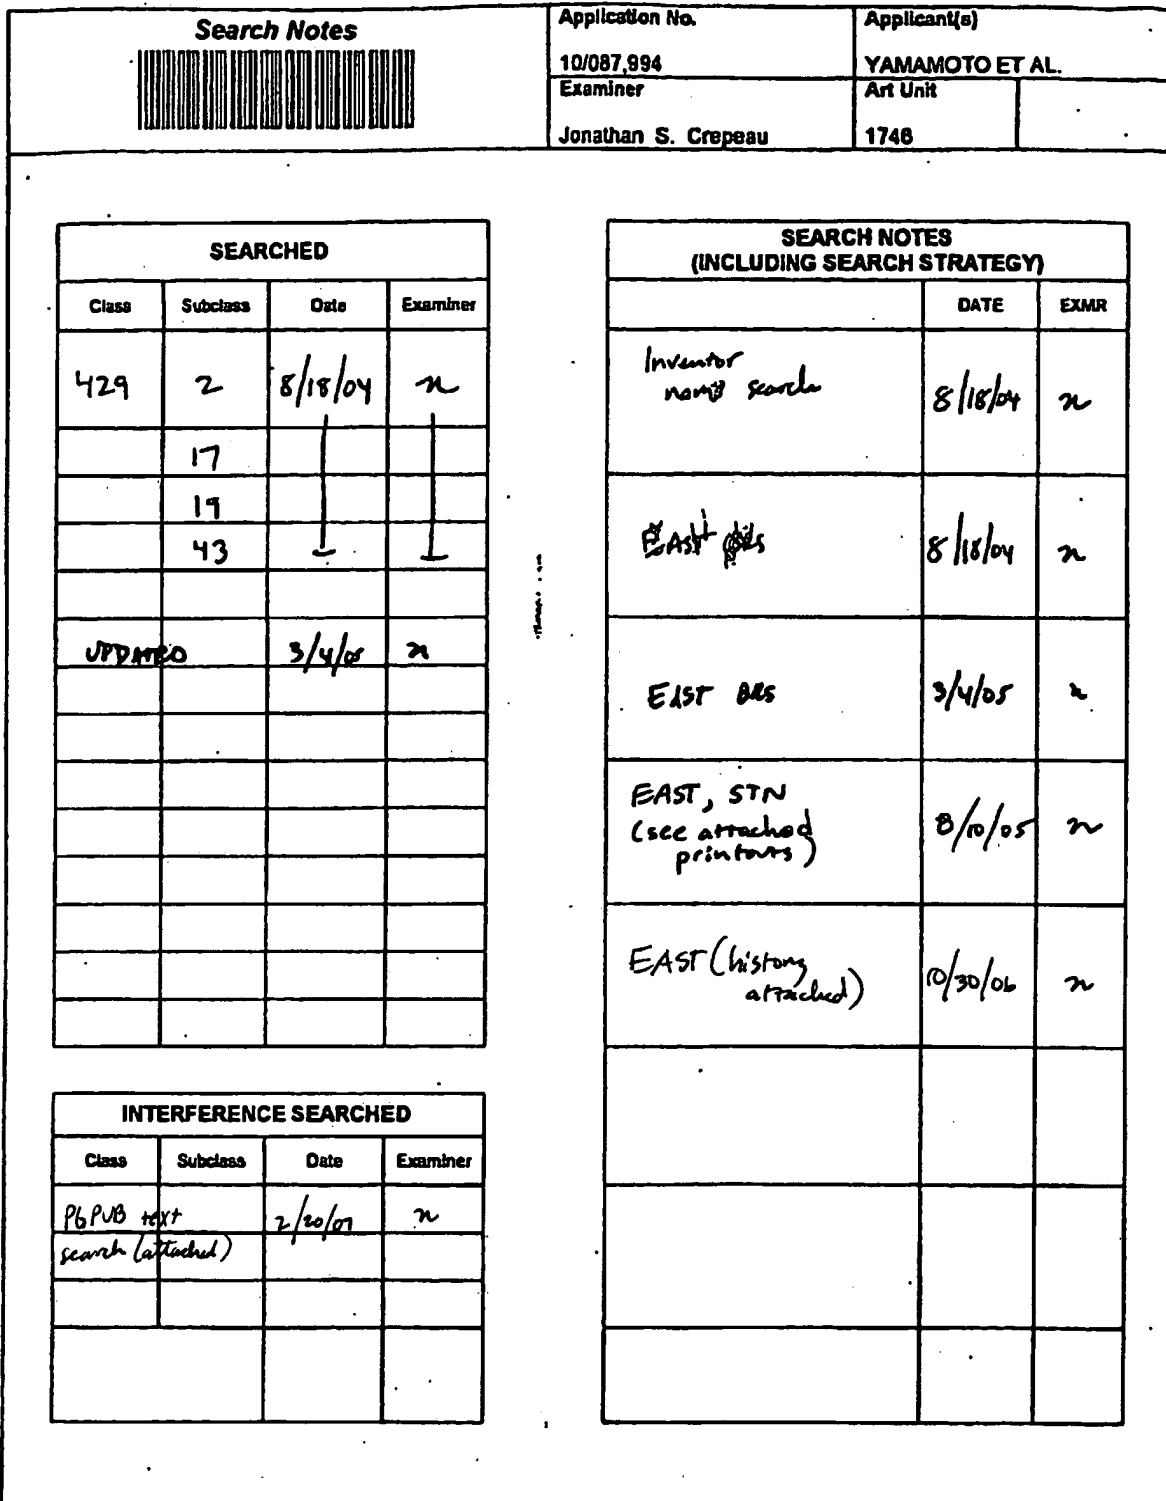 Search Notes
Application No.
10/087,994
Applicant(s)
YAMAMOTO ET AL.
Examiner
Jonathan S. Crepeau
Art Unit
1746
SEARCHED
Class Subclass Date Examiner
429 2 8/18/04
17
19
43
UPDATED 3/4/05
INTERFERENCE SEARCHED
Class Subclass Date Examiner
PGPUB text 2/20/07
search (attached)
SEARCH NOTES
(INCLUDING SEARCH STRATEGY)
DATE EXMR
Inventor
name search 8/18/04
EAST 8/18/04
EAST BRS 3/4/05
EAST, STN
(see attached
printouts) 8/10/05
EAST (history
attached) 10/30/06